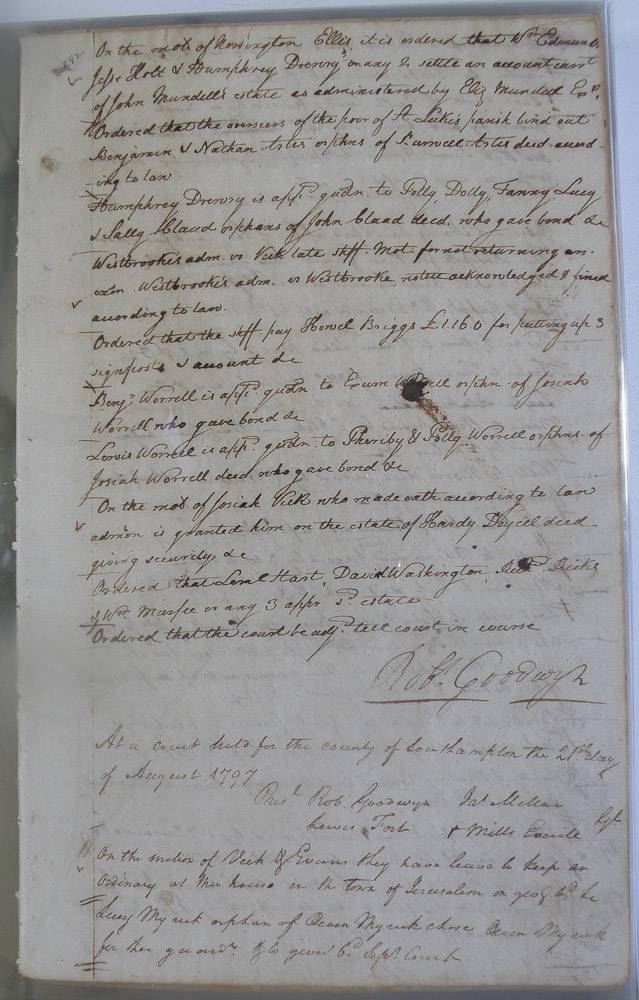 292
On the mot of Newington Ellis it is ordered that Wm Edmunds
Jesse Holt & Humphrey Drewry or any 2 settle an account curt
of John Mundell's estate as administered by Eliz Mundell Exr.
Ordered that the overseers of the poor of St Lukes parish bind out
Benjamin & Nathan Artes orphns of Artes decd. accord-
-ing to law
Humphrey Drewry is appd. gudn. to Polly, Dolly, Fanny, Lucy
& Sally Claud orphans of John Claud decd. who gave bond &c
Westbrooke's adm. vs Vick late shff. Mot for not returning an
exon. Westbrooke's adm. vs Westbrooke acknowledged & fined
according to law.
Ordered that the shff pay Howel Briggs £1.16.0 for putting up 3
signposts & account &c
Benj. Worrell is appd. gudn to Exum Worrell orphn. of Josiah
Worrell who gave bond &c
Lewis Worrell is appd. gudn. to Pheriby & Polly Worrell orphns. of
Josiah Worrell decd. who gave bond &c
On the mot of Josiah Vick who made oath according to law
admon is granted him on the estate of Hardy decd.
giving security &c
Ordered that Leml Hart, David Washington, Ricks
& Wm. Murfee or any 3 appr sd. estate
Ordered that the court be adjd. till court in course
Robt. Goodwyn
At a court held for the county of Southampton the 21st day
of August 1797
Prest. Rob. Goodwyn Jas. McNeil
Lewis Fort & Mills Esqr
On the motion of Vick & Evans they have leave to keep an
Ordinary at their house in the town of Jerusalem on &c
Lucy Myrick orphan of Owen Myrick chose Owen Myrick
for her guardn. & to give bd Sept. Court